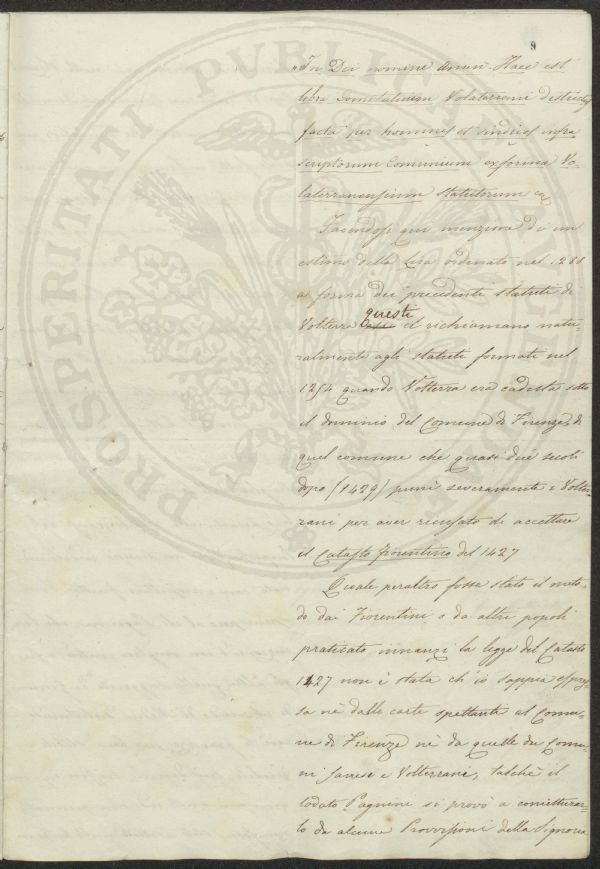 9
"In Dei nomine Amen. Haec est
libra Comitatuum Volaterrani districtus
facta per homines et sindicos infra
scriptorum Comunium ex forma Vo-
laterranensium statutorum ec
Facendosi qui menzione di un
estimo della Lira ordinato nel 1288
a forma dei precedenti statuti di
Volterra questi ci richiamano natu-
ralmente agli statuti formati nel
1254 quando Volterra era caduta sotto
il dominio del Comune di Firenze, di
quel comune che quasi due secoli
dopo (1429) punì severamente i Volter-
rani per aver ricusato di accettare
il Catasto fiorentino del 1427
Quale peraltro fosse stato il meto-
do dai Fiorentini o da altri popoli
praticato innanzi la legge del Catasto
1427 non è stata ch'io sappia espres-
sa nè dalle carte spettante al Comu-
ne di Firenze nè da quelle dei Comu-
ni Sanesi e Volterrani, talchè il
lodato Pagnini si provò a conietturar-
lo da alcune Provvisioni della Signoria
PROSPERITATI PVBLICAE